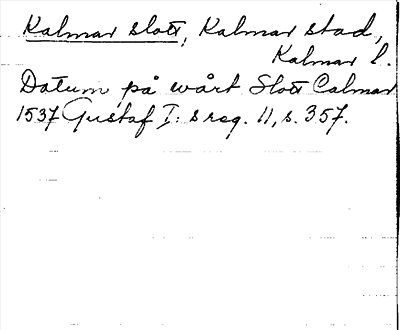 Kalmar slott, Kalmar stad,
Kalmar l.
Datum på wårt Slott Calmar
1537 Gustaf I:s reg. 11, s. 357.